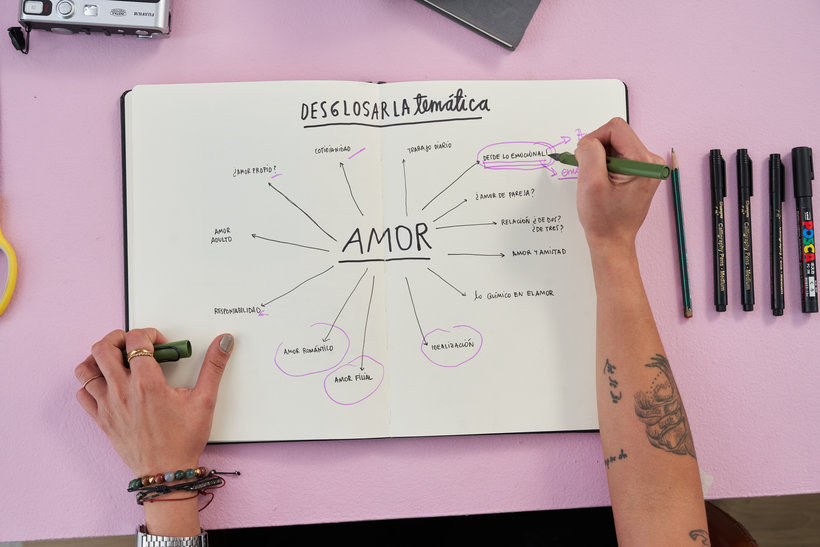 FUJIFILM
DESGLOSAR LA temática
COTIDIANIDAD
TRABAJO DIARIO
¿AMOR PROPIO?
DESDE LO EMOCIONAL
¿AMOR DE PAREJA?
AMOR
ADULTO
RELACIÓN ¿DE DOS?
¿DE TRES?
AMOR
AMOR Y AMISTAD
RESPONSABILIDAD
lo QUÍMICO EN EL AMOR
AMOR ROMÁNTICO
IDEALIZACIÓN
AMOR FILIAL
Calligraphy Pen - Medium
Calligraphy Pen - Medium
POSCA